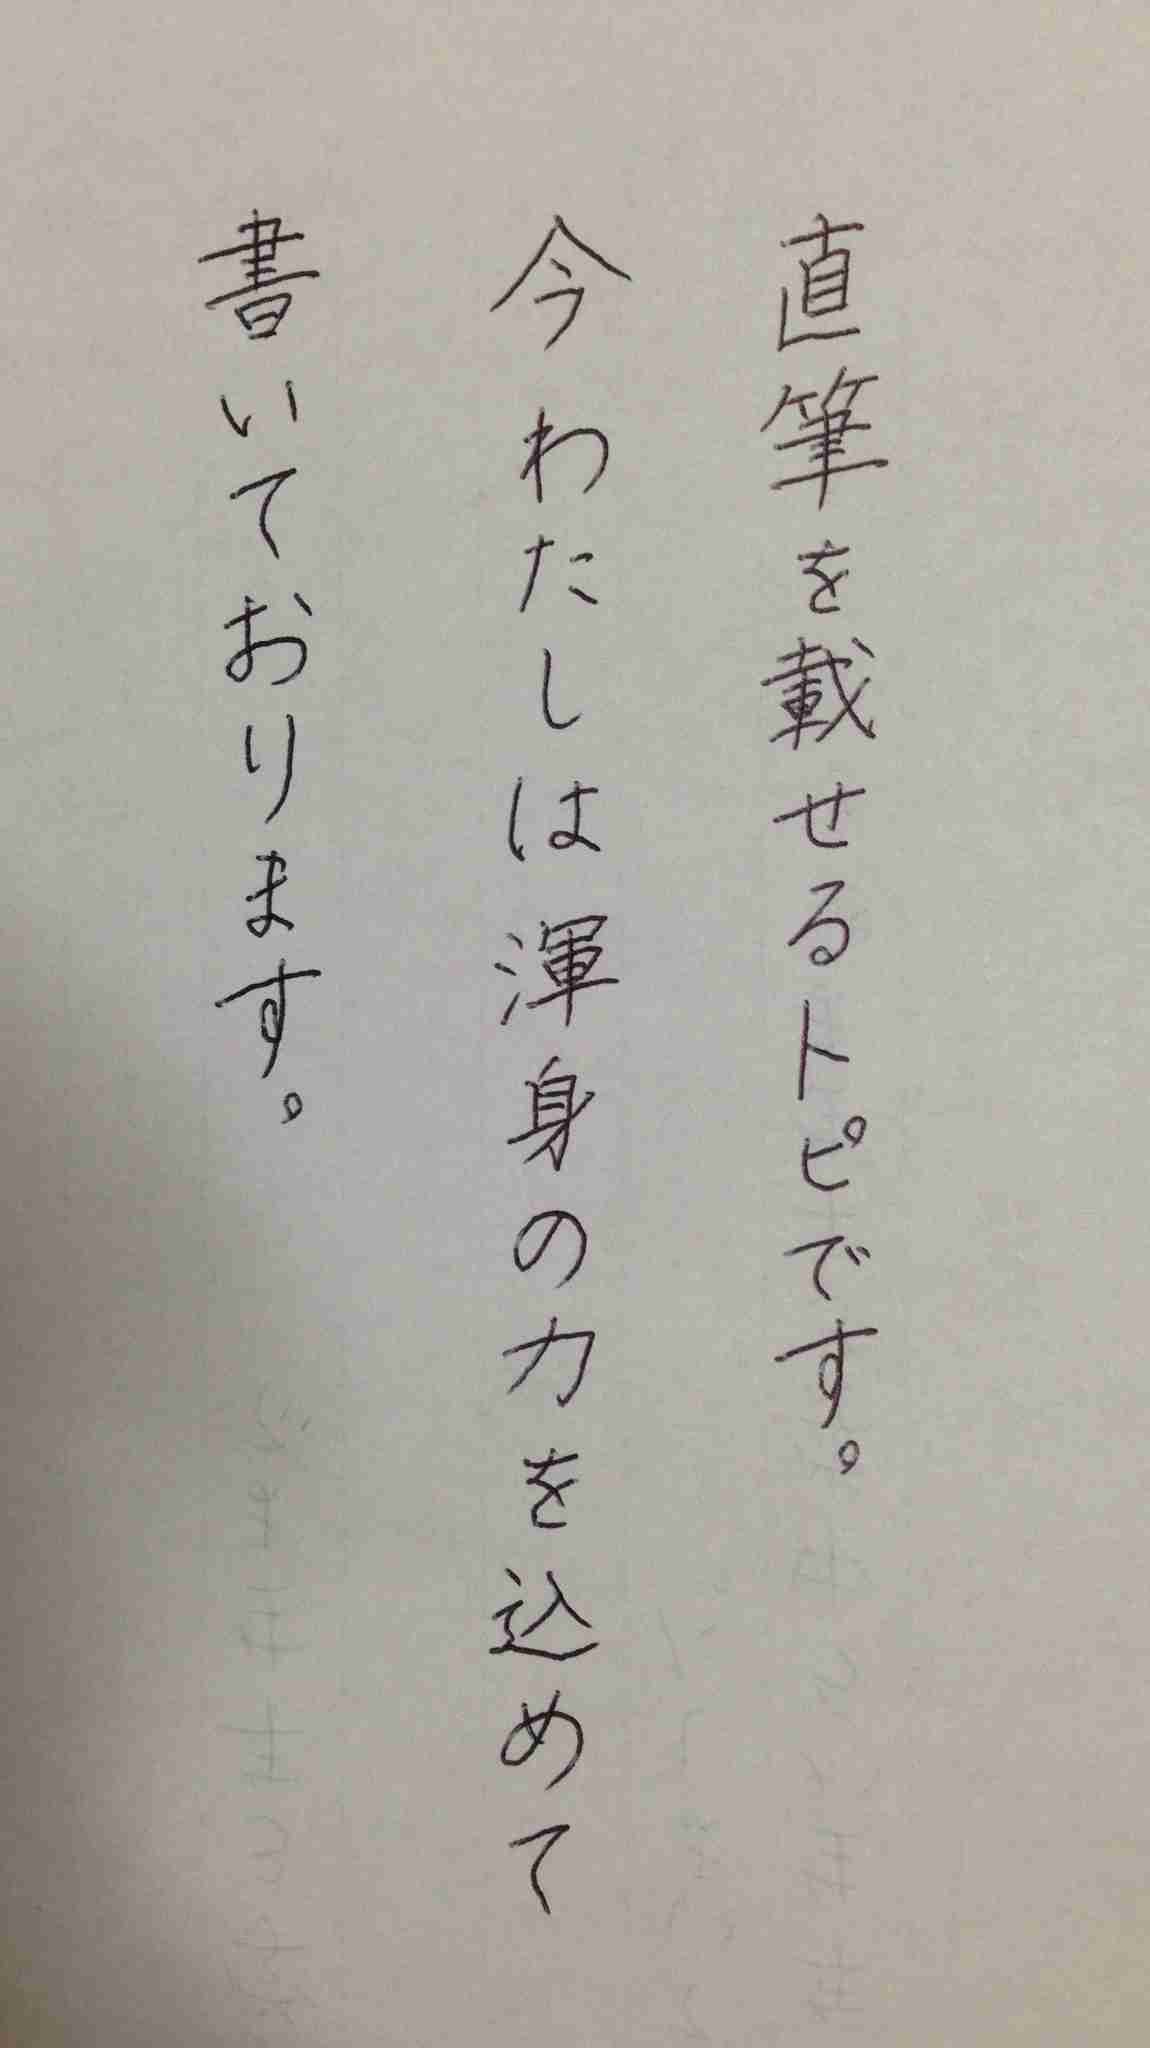 直筆を載せるトピです。
今わたしは渾身の力を込めて
書いております。